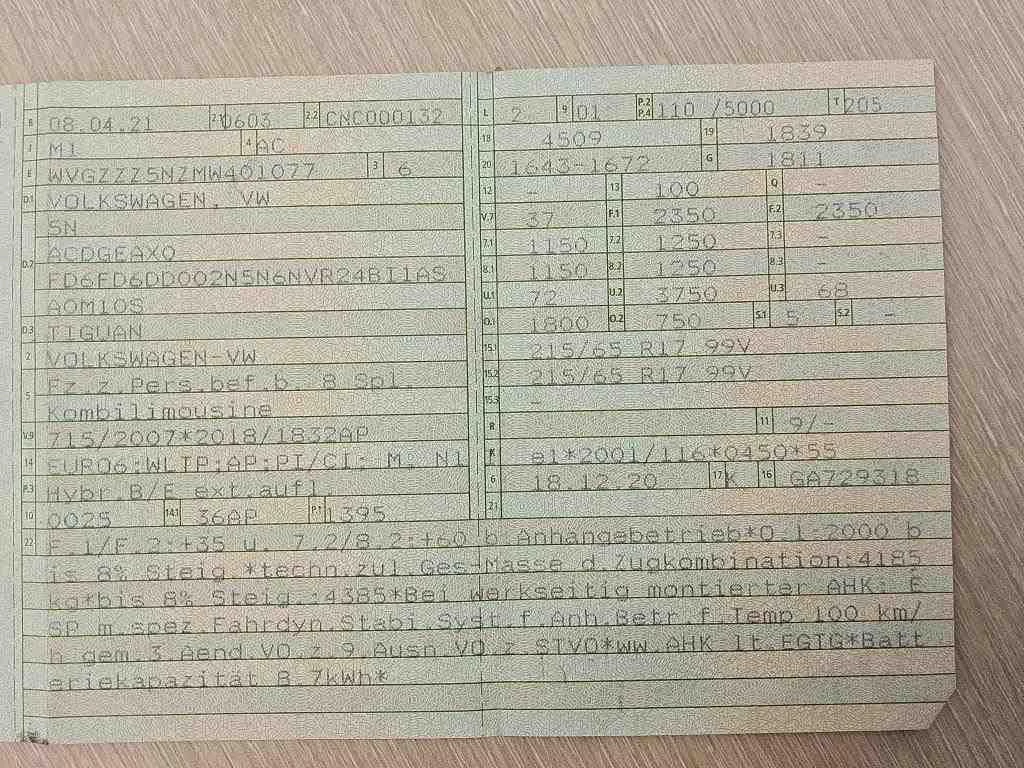 B 08.04.21 2.1 0603 2.2 CNC000132 L 2 9 01 P.2 P.4 110 /5000 T 205
J M1 4 AC 18 4509 19 1839
E WVGZZZ5NZMW401077 3 6 20 1643-1672 G 1811
D.1 VOLKSWAGEN, VW 12 - 13 100 Q -
5N V.7 37 F.1 2350 F.2 2350
D.2 ACDGEAX0 7.1 1150 7.2 1250 7.3 -
FD6FD6DD002N5N6NVR24BI1AS 8.1 1150 8.2 1250 8.3 -
A0M10S U.1 72 U.2 3750 U.3 68
D.3 TIGUAN O.1 1800 O.2 750 S.1 5 S.2 -
2 VOLKSWAGEN-VW 15.1 215/65 R17 99V
5 Fz.z.Pers.bef.b. 8 Spl. 15.2 215/65 R17 99V
Kombilimousine 15.3 -
V.9 715/2007*2018/1832AP R 11 9/-
14 EURO6;WLTP;AP;PI/CI; M, N1 K e1*2001/116*0450*55
P.3 Hybr.B/E ext.aufl 6 18.12.20 17 K 16 GA729318
10 0025 14.1 36AP P.1 1395 21
22 F.1/F.2:+35 u. 7.2/8.2:+60 b Anhängebetrieb*O.1:2000 b
is 8% Steig.*techn.zul.Ges-Masse d.Zugkombination:4185
kg*bis 8% Steig.:4385*Bei werkseitig montierter AHK: E
SP m.spez.Fahrdyn.Stabi.Syst.f.Anh.Betr.f.Temp.100 km/
h gem.3.Aend.VO.z.9.Ausn.VO.z.STVO*ww.AHK lt.EGTG*Batt
eriekapazität 8,7kWh*